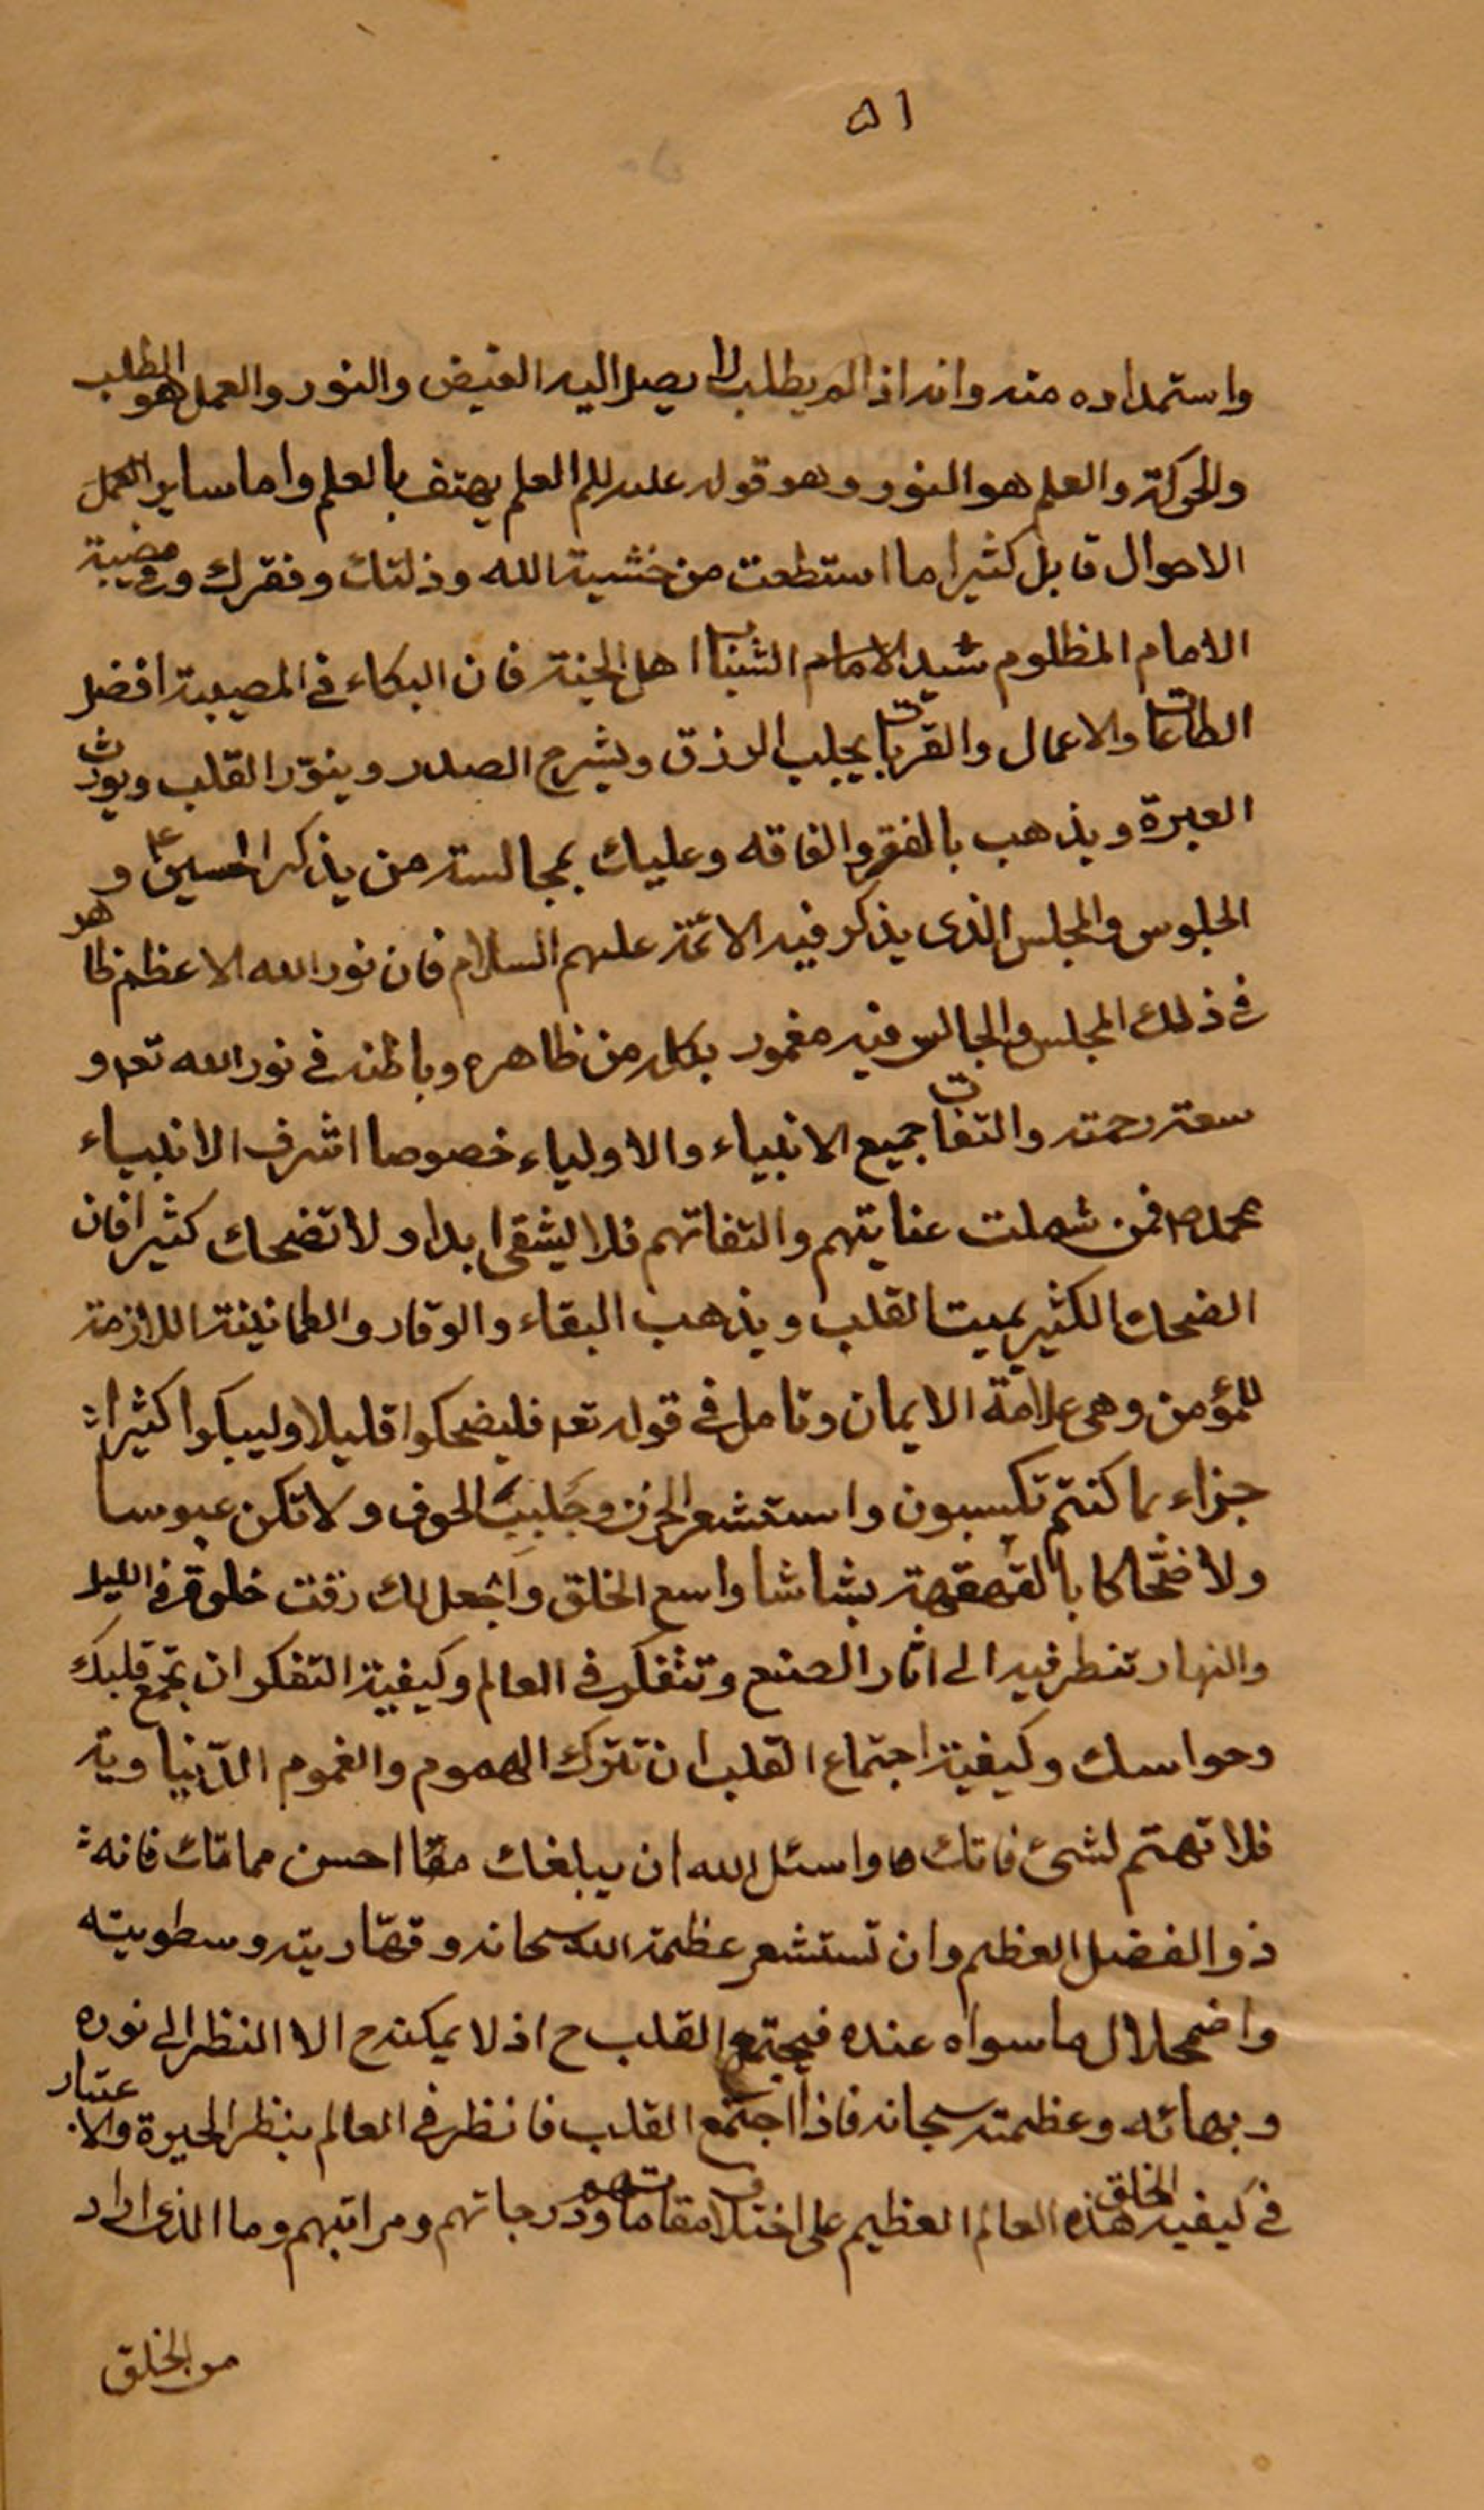 ٥١
واستمداده منه وانه اذا لم يطلب لا يصل اليه الفيض والنور والعمل هو الطلب
والحركة والعلم هو النور وهو قوله عليه السلم العلم يهتف بالعلم واما ساير العمل
الاحوال فابك كثيرا ما استطعت من خشية الله وذلتك وفقرك وفي مصيبة
الامام المظلوم سيد الامام الشباب اهل الجنة فان البكاء في المصيبة افضل
الطاعات والاعمال والقربات يجلب الرزق ويشرح الصدر وينوّر القلب ويورث
العبرة ويذهب بالفقر والفاقه وعليك بمجالسته من يذكر الحسين ع و
الجلوس والمجلس الذى يذكر فيه الائمّة عليهم السلام فان نور الله الاعظم ظاهر
فى ذلك المجلس والجالس فيه مغمور بكله من ظاهره وباطنه في نور الله تعه و
سعة رحمته والتفات جميع الانبياء والاولياء خصوصا اشرف الانبياء
محمد ص فمن شملت عنايتهم والتفاتهم فلا يشقى ابدا ولا تضحك كثيرا فان
الضحك الكثير يميت القلب ويذهب البقاء والوقار والطمانينة اللازمة
للمؤمن وهى علامة الايمان وتامل في قوله تعه فليضحكوا قليلا وليبكوا كثيرا
جزاء بما كنتم تكسبون واستشعر الحزن وجَلبِبَ الخوف ولا تكن عبوسا
ولا ضحّاكا بالقهقهة بشاشا واسع الخلق واجعل لك وقت خلوة فى الليل
والنهار تنظر فيه الى اثار الصنع وتتفكر في العالم وكيفية التفكر ان تجمع قلبك
وحواسك وكيفية اجتماع القلب ان تترك الهموم والغموم الدّنياوية
فلا تهتم لشئ فاتك واسئل الله ان يبلغك احسن مما فاتك فانه
ذو الفضل العظيم وان تستشعر عظمة الله سبحانه وقهّاريته وسطويته
واضمحلال ما سواه عنده فيجتمع القلب ح اذ لا يمكنه ح الا النظر الى نوره
وبهائه وعظمته سبحانه فاذا اجتمع القلب فانظر في العالم بنظر الحيرة والاعتبار
في كيفية الخلق هذه العالم العظيم على اختلاف مقاماتهم ودرجاتهم ومراتبهم وما الذى اراد
من الخلق